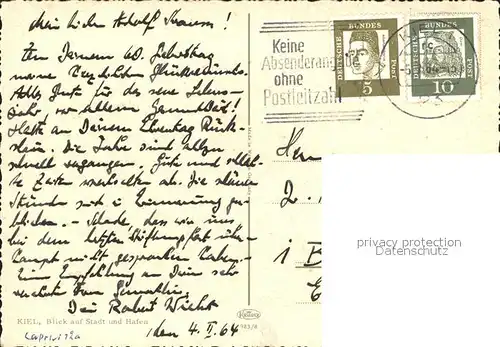 Mein lieber Adolf Krauss!
Zu Deinem 60. Geburtstag
meine herzlichen Glückwünsche.
Alles Gute für das neue Lebens-
jahr, vor allem Gesundheit!
Halte an Deinem Ehrentag Rück-
schau. Die Jahre sind allzu
schnell vergangen, Gute und
Zeiten wechselten ab. Die schönen
Stunden sind in Erinnerung ge-
blieben. - Schade, dass wir uns
bei dem letzten Stiftungsfest über-
haupt nicht gesprochen haben.
Eine Empfehlung an Deine sehr
verehrte Frau Gemahlin.
Dein Robert
den 4. II. 64
KIEL, Blick auf Stadt und Hafen
Keine
Absenderangabe
ohne
Postleitzahl
DEUTSCHE BUNDESPOST
5
DEUTSCHE BUNDESPOST
10
Herrn
2.
i B
privacy protection
Datenschutz